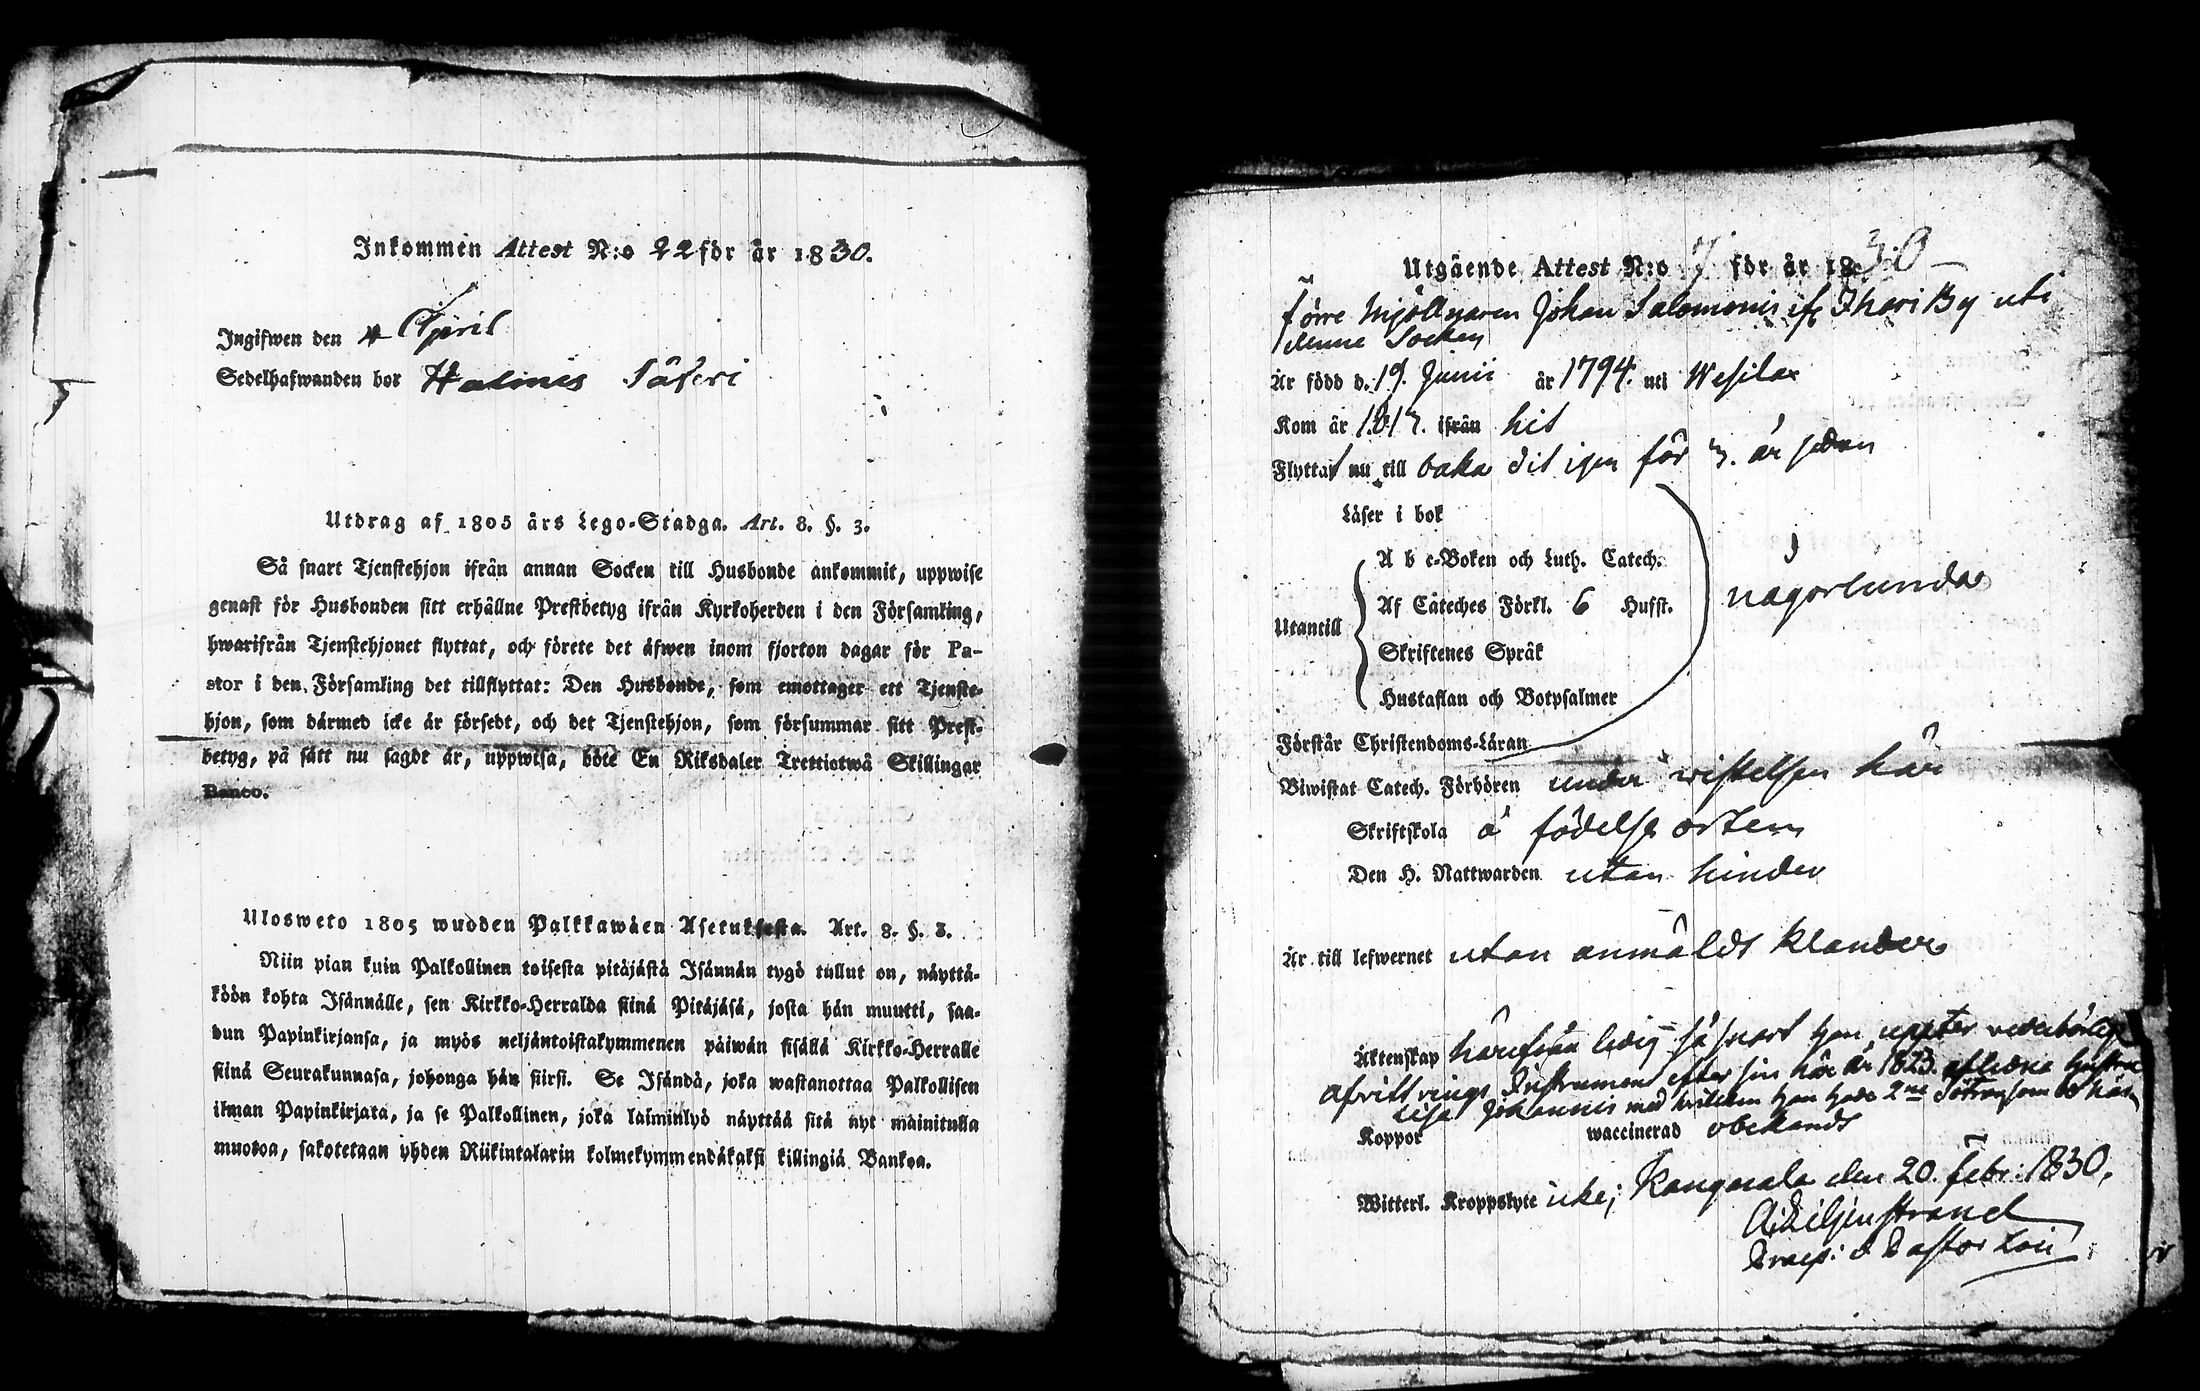 Inkommen Attest N:o 22 för år 1830.
Ingifwen den 4 April
Sedelhafwanden bor Halmis Säteri
Utdrag af 1805 års Lego-Stadga. Art. 8. §. 3.
Så snart Tjenstehjon ifrån annan Socken till Husbonde ankommit, uppwise
genast för Husbonden sitt erhållne Prestbetyg ifrån Kyrkoherden i den Församling,
hwarifrån Tjenstehjonet flyttat, och förete det äfwen inom fjorton dagar för Pa-
stor i den Församling det tillflyttat: Den Husbonde, som emottager ett Tjenste-
hjon, som därmed icke är försedt, och det Tjenstehjon, som försummar sitt Prest-
betyg, på sätt nu sagdt är, uppwisa, böte En Riksdaler Trettiotwå Skillingar
Banco.
Ulosweto 1805 wuoden Palkkawäen Asetuksesta. Art. 8. §. 3.
Niin pian kuin Palkollinen toisesta pitäjästä Isännän tygö tullut on, näyttä-
köön kohta Isännälle, sen Kirkko-Herralda siinä Pitäjäsä, josta hän muutti, saa-
dun Papinkirjansa, ja myös neljäntoistakymmenen päiwän sisällä Kirkko-Herralle
siinä Seurakunnasa, johonga hän siirsi. Se Isändä, joka wastanottaa Palkollisen
ilman Papinkirjata, ja se Palkollinen, joka laiminlyö näyttää sitä nyt mainitulla
muotoa, sakotetaan yhden Riikintalarin kolmekymmendäkaksi killingiä Bankoa.
Utgående Attest N:o 7 för år 1830
Förre Mjöllnaren Johan Salomonis if. Ihari By uti
denne Socken
Är född d. 19. Junii år 1794. uti Wesilax
Kom år 1817. ifrån hit
Flyttat nu till baka dit igen för 7. år sedan
Läser i bok
Utantill
A b c-Boken och Luth. Catech.
Af Cateches Förkl. 6 Hufst.
Skriftenes Språk
Hustaflan och Botpsalmer
någorlunda
Förstår Christendoms-Läran
Biwistat Catech. Förhören under wistelsen här
Skriftskola å födelse orten
Den H. Nattwarden utan hinder
Är till lefwernet utan anmäldt klander
Äktenskap härifrån ledig så snart han uppter wederbörligt
afwittrings Instrument efter sin här år 1823. aflidna hustru
Lisa Johannis med hvilken han hade 2ne
Koppor waccinerad obekandt
Witterl. Kroppslyte icke; Kangasala den 20. Febr: 1830.
A: Liljenstrand
Praep: & Pastor Loci